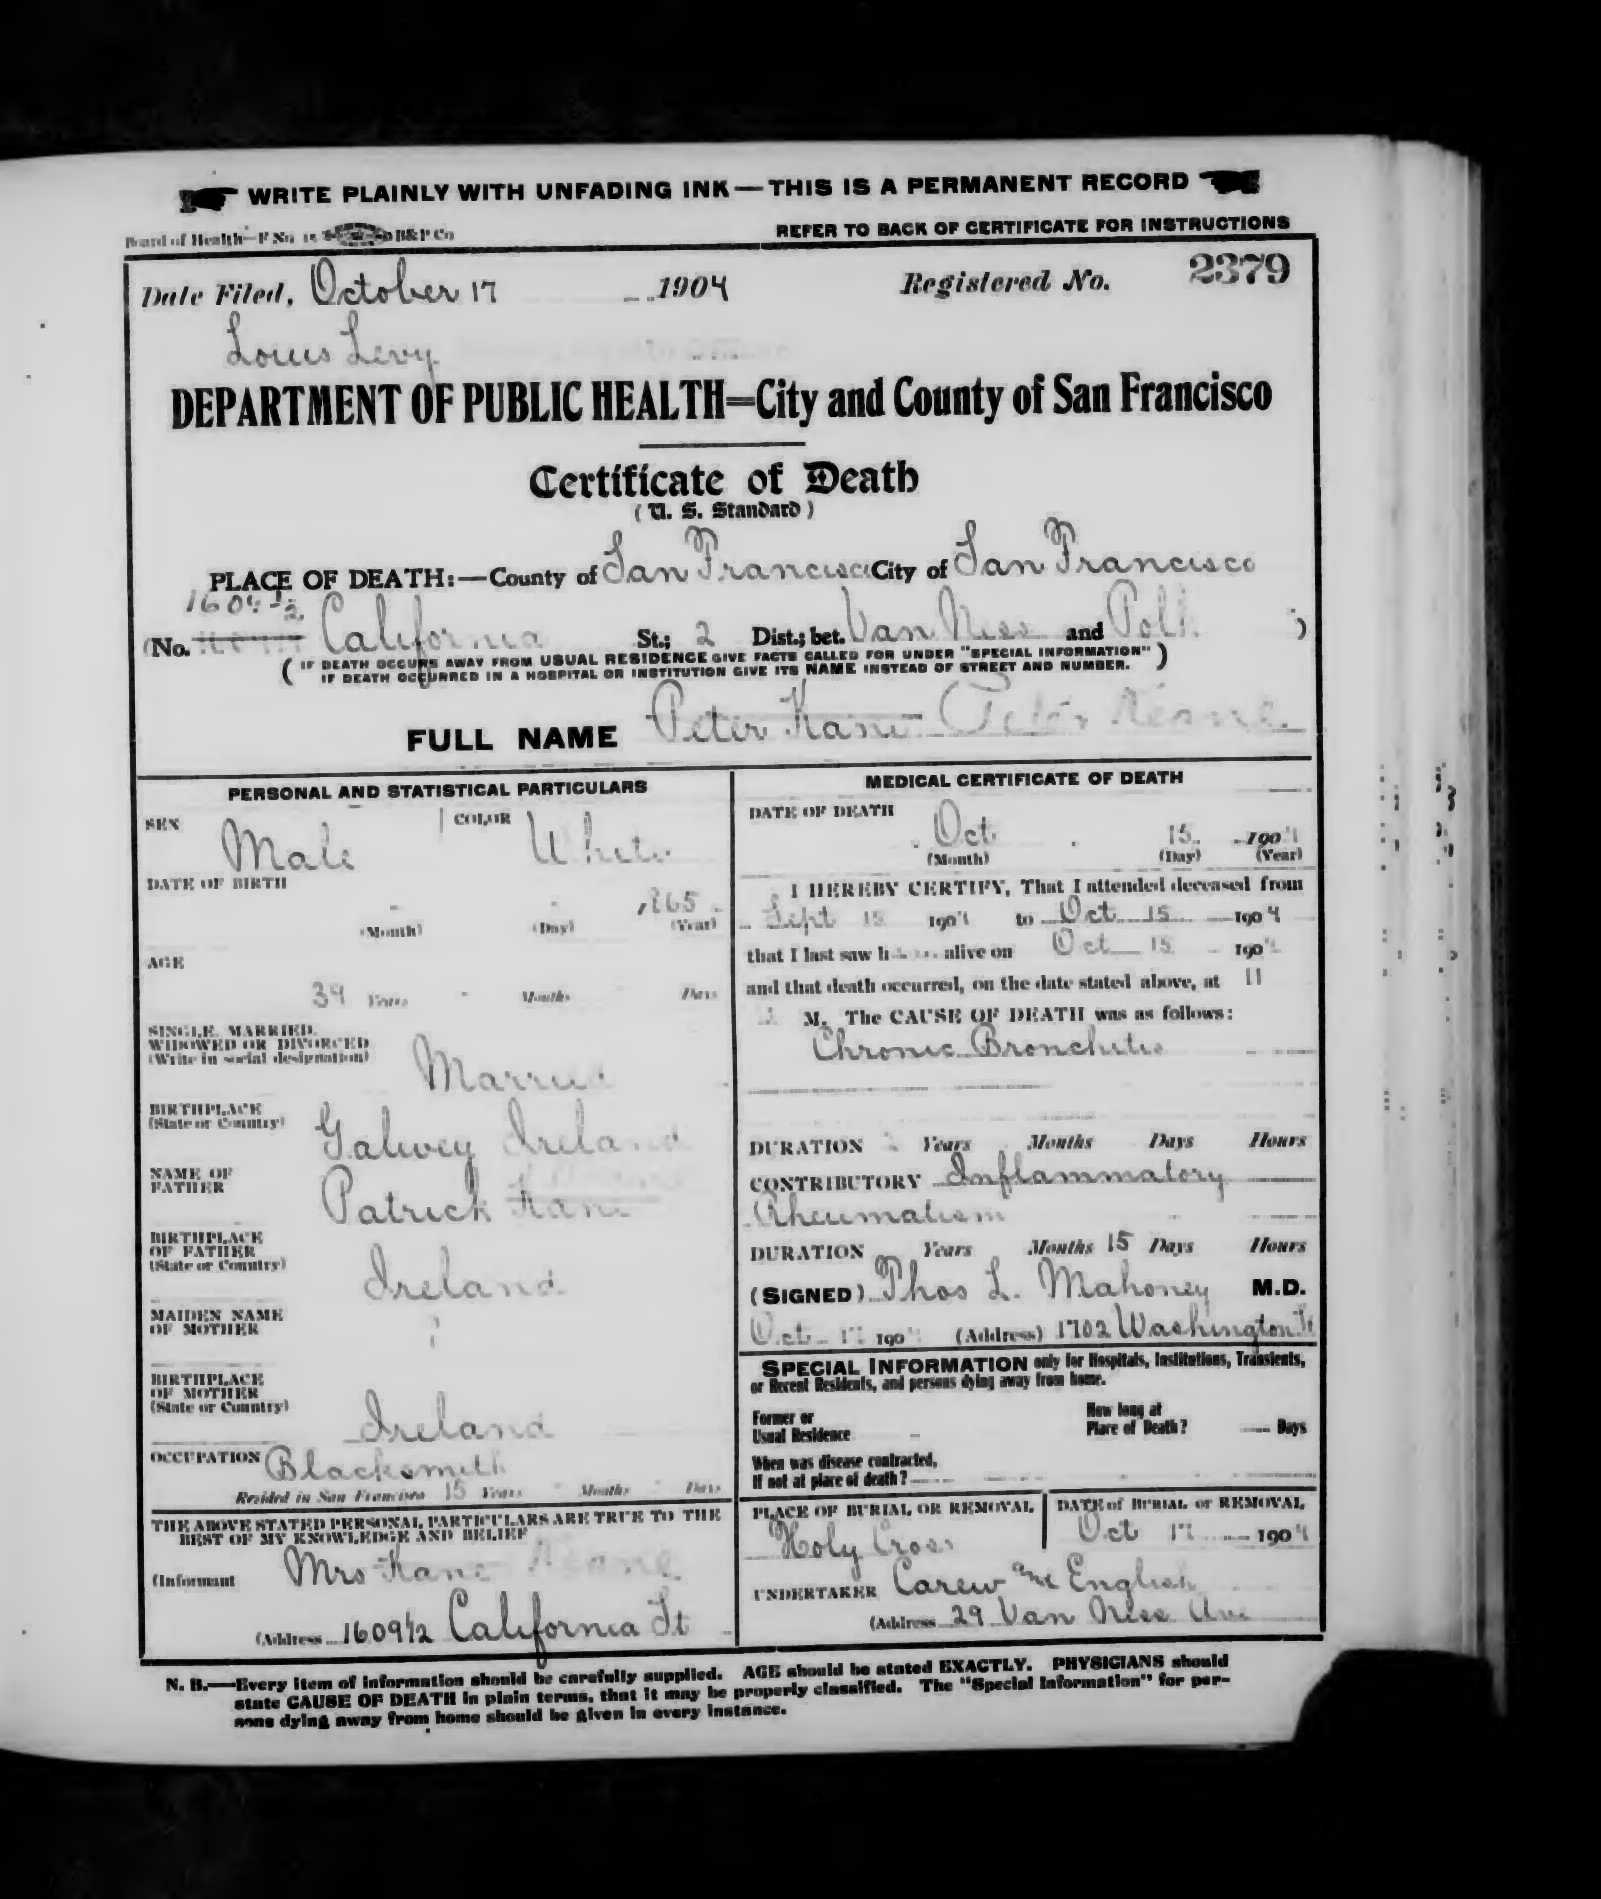 WRITE PLAINLY WITH UNFADING INK — THIS IS A PERMANENT RECORD
Board of Health—F No 15 B&P Co
REFER TO BACK OF CERTIFICATE FOR INSTRUCTIONS
Date Filed, October 17 1904 Registered No. 2379
Louis Levy
DEPARTMENT OF PUBLIC HEALTH=City and County of San Francisco
Certificate of Death
(U. S. Standard)
PLACE OF DEATH:—County of San Francisco City of San Francisco
1609 1/2
(No. California St.; 2 Dist.; bet. Van Ness and Polk )
( IF DEATH OCCURS AWAY FROM USUAL RESIDENCE GIVE FACTS CALLED FOR UNDER "SPECIAL INFORMATION" )
IF DEATH OCCURRED IN A HOSPITAL OR INSTITUTION GIVE ITS NAME INSTEAD OF STREET AND NUMBER.
FULL NAME Peter Kane Peter Keane
PERSONAL AND STATISTICAL PARTICULARS
SEX Male COLOR White
DATE OF BIRTH
1865
(Month) (Day) (Year)
AGE
39 Years Months Days
SINGLE, MARRIED,
WIDOWED OR DIVORCED
(Write in social designation) Married
BIRTHPLACE
(State or Country) Galway Ireland
NAME OF
FATHER Patrick Kane Keane
BIRTHPLACE
OF FATHER
(State or Country) Ireland
MAIDEN NAME
OF MOTHER ?
BIRTHPLACE
OF MOTHER
(State or Country) Ireland
OCCUPATION Blacksmith
Resided in San Francisco 15 Years Months Days
THE ABOVE STATED PERSONAL PARTICULARS ARE TRUE TO THE
BEST OF MY KNOWLEDGE AND BELIEF
(Informant Mrs Kane Keane
(Address 1609 1/2 California St
MEDICAL CERTIFICATE OF DEATH
DATE OF DEATH
Oct 15 1904
(Month) (Day) (Year)
I HEREBY CERTIFY, That I attended deceased from
Sept 15 1904 to Oct 15 1904
that I last saw h alive on Oct 15 1904
and that death occurred, on the date stated above, at 11
M. The CAUSE OF DEATH was as follows:
Chronic Bronchitis
DURATION Years Months Days Hours
CONTRIBUTORY Inflammatory
Rheumatism
DURATION Years Months 15 Days Hours
(SIGNED) Thos L. Mahoney M.D.
Oct 17 1904 (Address) 1702 Washington St
SPECIAL INFORMATION only for Hospitals, Institutions, Transients,
or Recent Residents, and persons dying away from home.
Former or
Usual Residence
How long at
Place of Death? Days
When was disease contracted,
If not at place of death?
PLACE OF BURIAL OR REMOVAL
Holy Cross
DATE of BURIAL or REMOVAL
Oct 17 1904
UNDERTAKER Carew and English
(Address 29 Van Ness Ave
N. B.—Every item of information should be carefully supplied. AGE should be stated EXACTLY. PHYSICIANS should
state CAUSE OF DEATH in plain terms, that it may be properly classified. The "Special Information" for per-
sons dying away from home should be given in every instance.